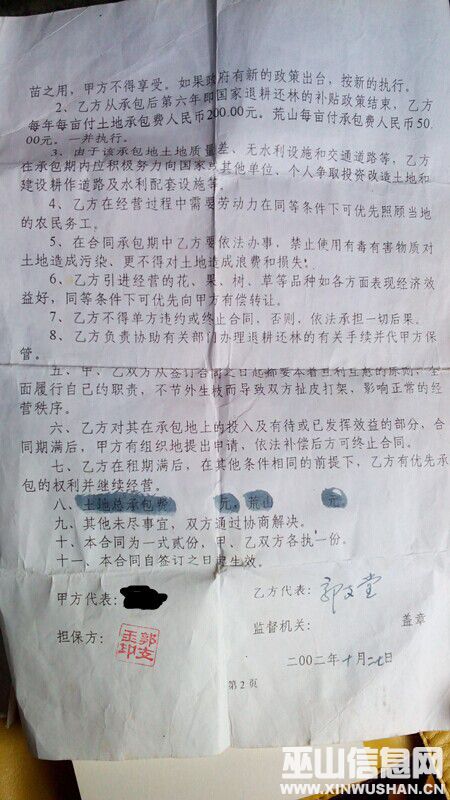 苗之用,甲方不得享受。如果政府有新的政策出台,按新的执行。
2、乙方从承包后第六年即国家退耕还林的补贴政策结束,乙方
每年每亩付土地承包费人民币200.00元。荒山每亩付承包费人民币50.
00元。一并执行。
3、由于该承包土地土地质量差、无水利设施和交通道路等,乙方
在承包期内应积极努力向国家或其他单位、个人争取投资改造土地和
建设耕作道路及水利配套设施等。
4、乙方在经营过程中需要劳动力在同等条件下可优先照顾当地
的农民务工。
5、在合同承包期中乙方要依法办事,禁止使用有毒有害物质对
土地造成污染、更不得对土地造成浪费和损失。
6、乙方引进经营的花、果、树、草等品种如各方面表现经济效
益好,同等条件下可优先向甲方有偿转让。
7、乙方不得单方违约或终止合同,否则,依法承担一切后果。
8、乙方负责协助有关部门办理退耕还林的有关手续并代甲方保
管。
五、甲、乙双方从签订合同之日起都要本着互利互惠的原则,全
面履行自己的职责,不节外生枝而导致双方扯皮打架,影响正常的经
营秩序。
六、乙方对其在承包地上的投入及有待或已发挥效益的部分,合
同期满后,甲方有组织地提出申请,依法补偿后方可终止合同。
七、乙方在租期满后,在其他条件相同的前提下,乙方有优先承
包的权利并继续经营。
八、土地总承包费 元,荒山 元。
九、其他未尽事宜,双方通过协商解决。
十、本合同为一式贰份,甲、乙双方各执一份。
十一、本合同自签订之日起生效。
甲方代表: 乙方代表:郭文堂
担保方: 监督机关: 盖章
二00二年十月二七日
第2页
巫山信息网
WWW.XINWUSHAN.CN